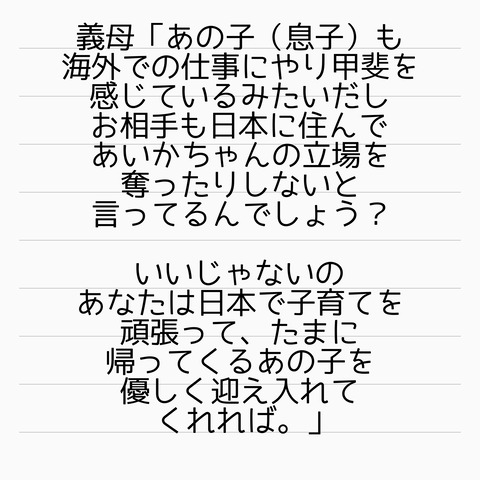 義母「あの子（息子）も
海外での仕事にやり甲斐を
感じているみたいだし
お相手も日本に住んで
あいかちゃんの立場を
奪ったりしないと
言ってるんでしょう？
いいじゃないの
あなたは日本で子育てを
頑張って、たまに
帰ってくるあの子を
優しく迎え入れて
くれれば。」